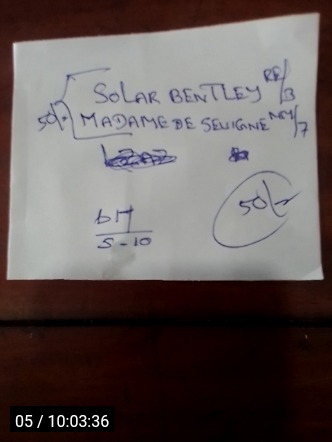 SOLAR BENTLEY RE/3
50/- MADAME DE SEVIGNE NM/7
bM
5-10
50/-
05 / 10:03:36